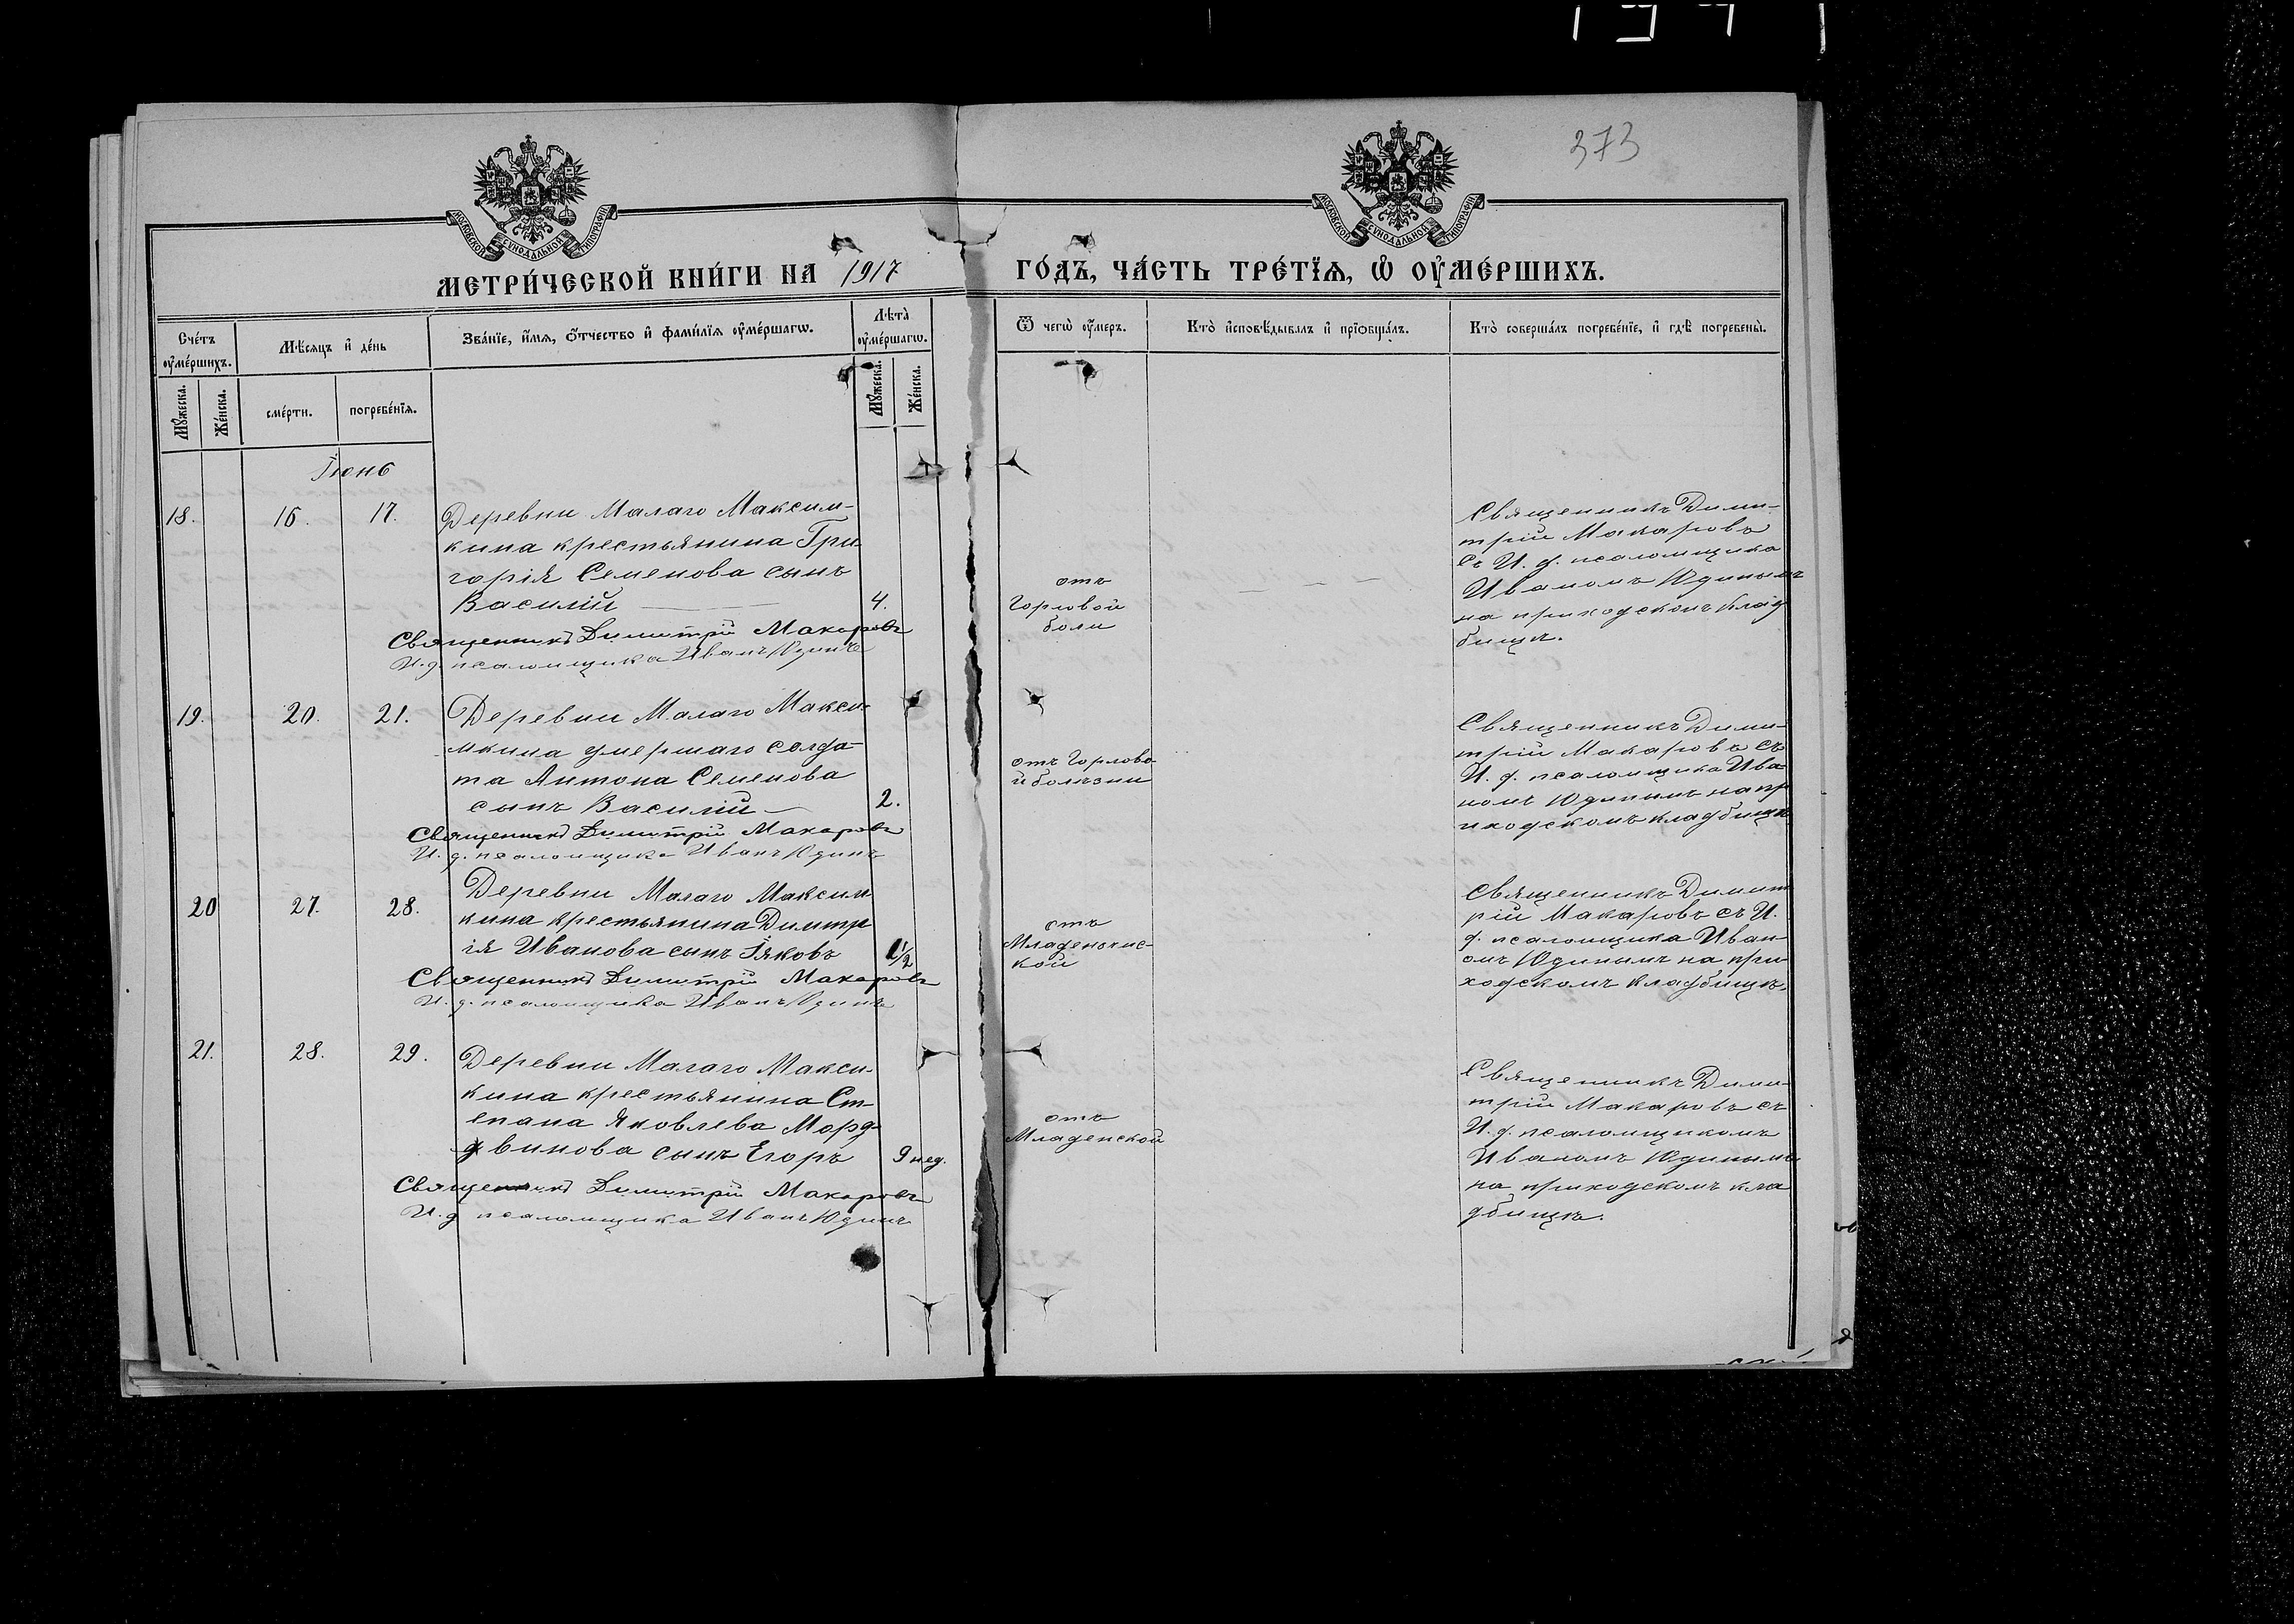 373
МОСКОВСКОЙ СѴНОДАЛЬНОЙ ТИПОГРАФІИ
МОСКОВСКОЙ СѴНОДАЛЬНОЙ ТИПОГРАФІИ
МЕТРИ́ЧЕСКОЙ КНИ́ГИ НА 1917 ГО́ДЪ, ЧА́СТЬ ТРЕ́ТЇѦ, Ѡ҆ ОУ҆МЕ́РШИХЪ.
Сче́тъ оу҆ме́ршихъ.
Мѣ́сяцъ и҆ де́нь
Зва́нїе, и҆́мѧ, ѻ҆́тчество и҆ фами́лїѧ оу҆ме́ршагѡ.
Лѣта̀ оу҆ме́ршагѡ.
Ѿ чегѡ̀ оу҆́меръ.
Кто̀ и҆сповѣ́дывалъ и҆ прїѡбща́лъ.
Кто̀ соверша́лъ погребе́нїе, и҆ гдѣ̀ погребены̀.
Мꙋ́жеска.
Же́нска.
сме́рти.
погребе́нїѧ.
Мꙋ́жеска.
Же́нска.
Іюнь
18. 16. 17.
Деревни Малаго Максим-
кина крестьянина Гри-
горія Семенова сынъ
Василій 4.
Священникъ Димитрій Макаровъ
И.д. псаломщика Иванъ Юдинъ
отъ
Горловой
боли
Священникъ Дими-
трій Макаровъ
съ И. д. псаломщика
Иваномъ Юдинымъ
на приходскомъ клад
бищѣ.
19. 20. 21.
Деревни Малаго Макси-
мкина умершаго солда-
та Антона Семенова
сынъ Василій 2.
Священникъ Димитрій Макаровъ
И. д. псаломщика Иванъ Юдинъ
отъ Горлово
й болѣзни
Священникъ Дими-
трій Макаровъ съ
И. д. псаломщика Ива-
номъ Юдинымъ на пр
иходскомъ кладбищѣ
20 27. 28.
Деревни Малаго Максим
кина крестьянина Димтр
ія Иванова сынъ Іяковъ 1/2
Священникъ Димитрій Макаровъ
И. д. псаломщика Иванъ Юдинъ
отъ
Младенчис-
кой
Священникъ Димит
рій Макаровъ съ И.
д. псаломщика Иван-
омъ Юдинымъ на при-
ходскомъ кладбищѣ.
21. 28. 29.
Деревни Малаго Макси-
кина крестьянина Ст-
епана Яковлева Морд-
двинова сынъ Егоръ 9 нед.
Священникъ Димитрій Макаровъ
И. д псаломщика Иванъ Юдинъ
отъ
Младенской
Священникъ Дими-
трій Макаровъ съ
И. д. псаломщикомъ
Иваномъ Юдинымъ
на приходскомъ кла
дбищѣ.